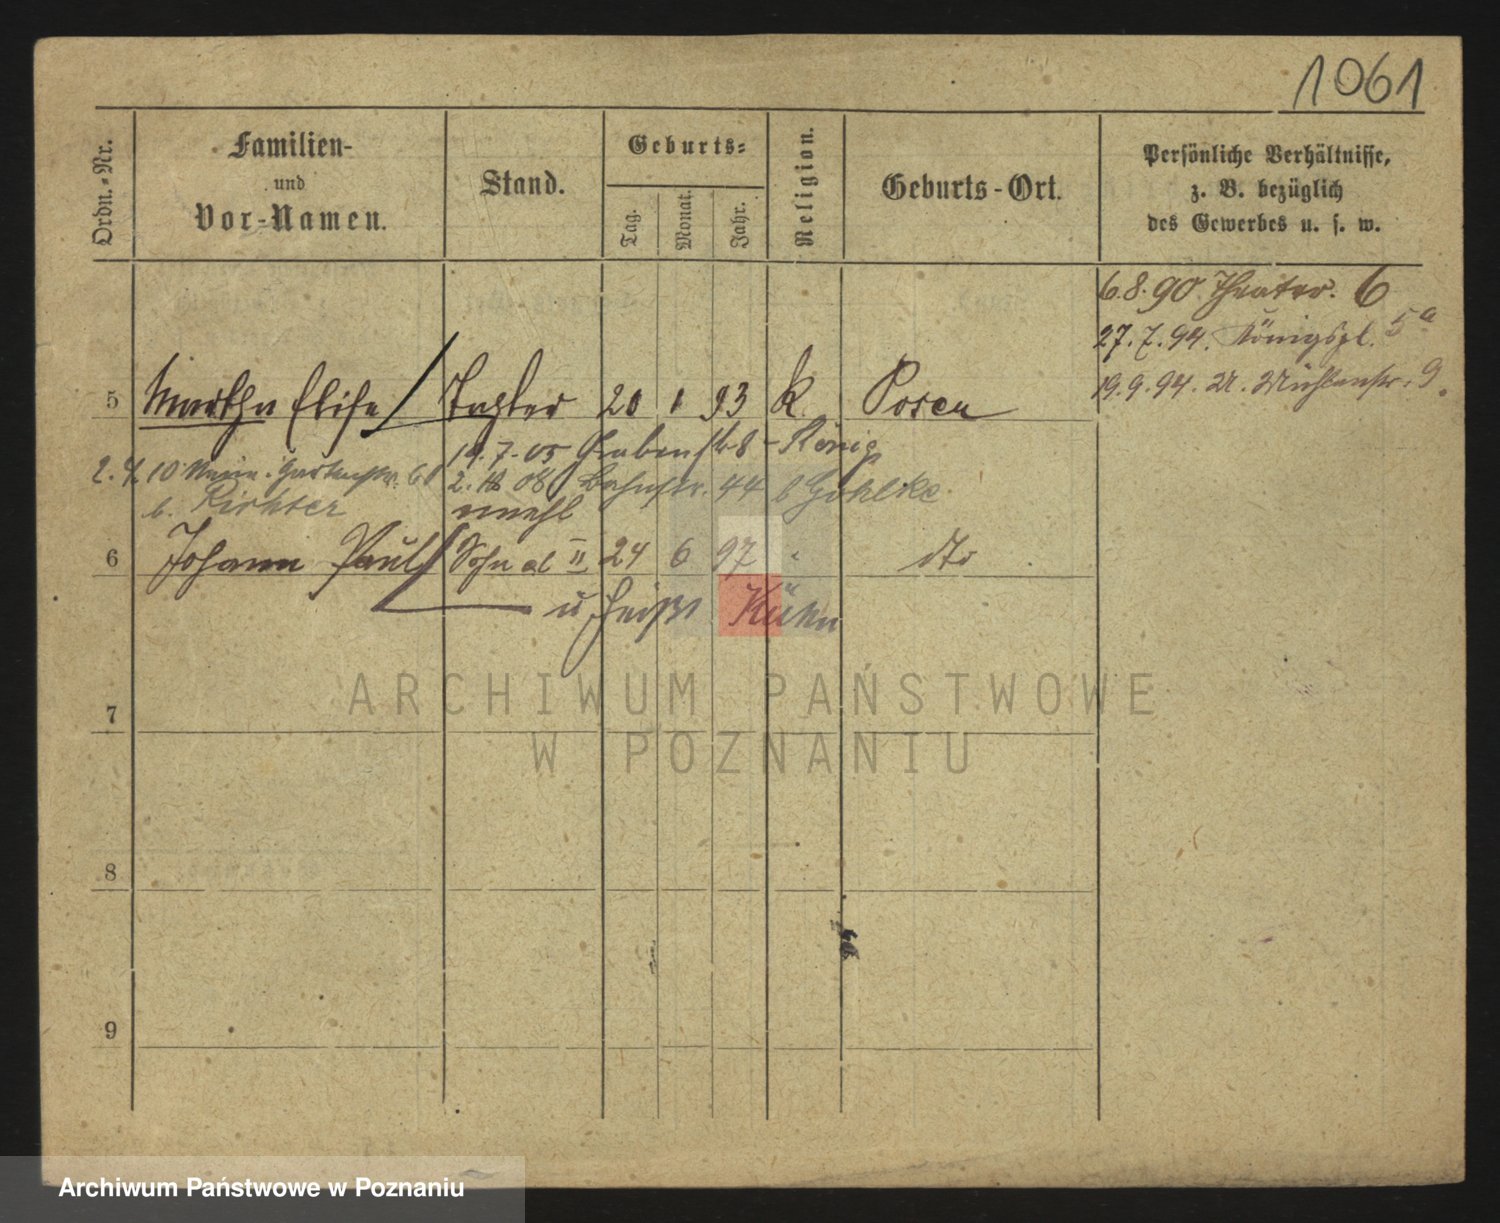 1061
Ordn.-Nr.
Familien-
und
Vor-Namen.
Stand.
Geburts-
Tag.
Monat.
Jahr.
Religion.
Geburts-Ort.
Persönliche Verhältnisse,
z. B. bezüglich
des Gewerbes u. s. w.
6.8.90 Theater. 6
27.7.94. Königspl. 5a
19.9.94. U. Mühlenstr. 9.
5 Martha Elise Tochter 20 1 93 k. Posen
19.7.05 Grabenstr 8 - König
10 Gartenstr.
2. 08 Bahnstr. 44 b Gohlke
b. Richter
6 Johann Paul Sohn ad II 24 6 97 " dto
u heißt Kühn
7
8
9
ARCHIWUM PAŃSTWOWE
W POZNANIU
Archiwum Państwowe w Poznaniu